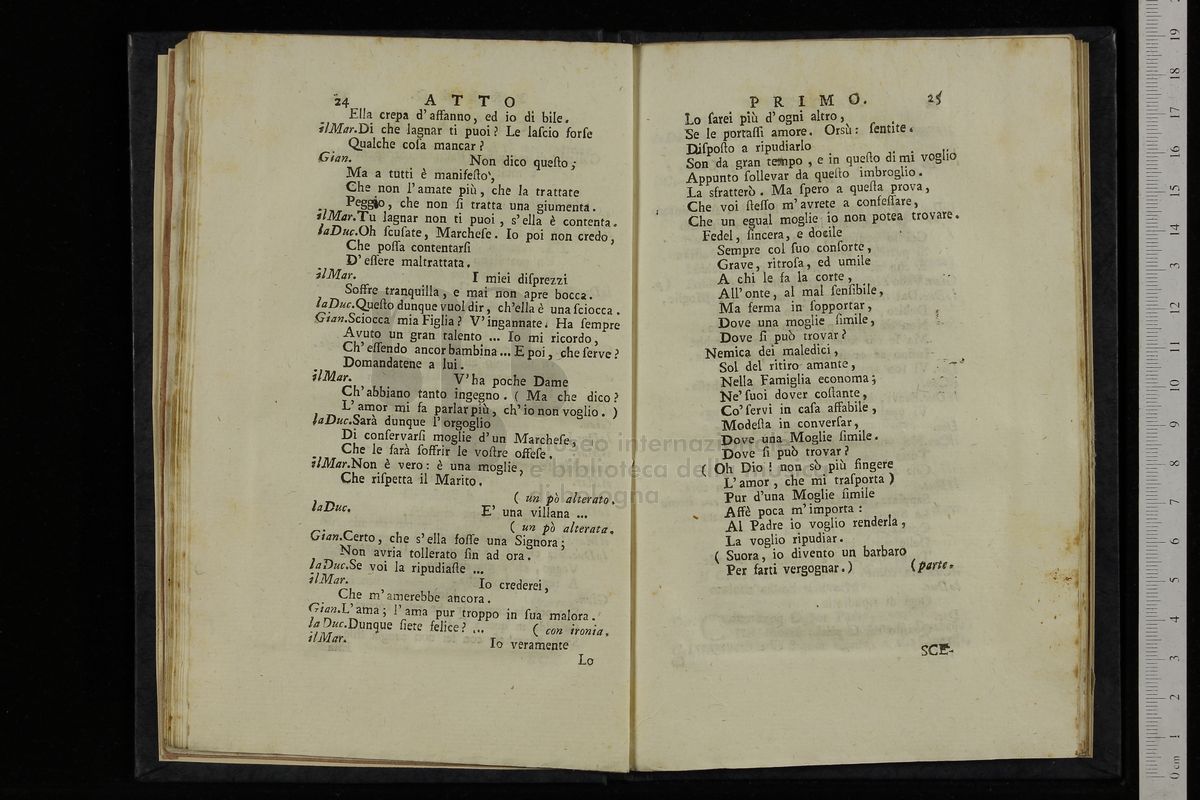 24 ATTO
Ella crepa d'affanno, ed io di bile.
ilMar.Di che lagnar ti puoi? Le laſcio forſe
Qualche coſa mancar?
Gian. Non dico queſto;
Ma a tutti è manifeſto,
Che non l'amate più, che la trattate
Peggio, che non ſi tratta una giumenta.
ilMar.Tu lagnar non ti puoi, s'ella è contenta.
laDuc.Oh ſcuſate, Marcheſe. Io poi non credo,
Che poſſa contentarſi
D'eſſere maltrattata.
ilMar. I miei diſprezzi
Soffre tranquilla, e mai non apre bocca.
laDuc.Queſto dunque vuol dir, ch'ella è una ſciocca.
Gian.Sciocca mia Figlia? V'ingannate. Ha ſempre
Avuto un gran talento ... Io mi ricordo,
Ch'eſſendo ancor bambina ... E poi, che ſerve?
Domandatene a lui.
ilMar. V'ha poche Dame
Ch'abbiano tanto ingegno. ( Ma che dico?
L'amor mi fa parlar più, ch'io non voglio. )
laDuc.Sarà dunque l'orgoglio
Di conſervarſi moglie d'un Marcheſe,
Che le farà ſoffrir le voſtre offeſe.
ilMar.Non è vero: è una moglie,
Che riſpetta il Marito.
( un pò alterato.
laDuc. E' una villana ...
( un pò alterata.
Gian.Certo, che s'ella foſſe una Signora;
Non avria tollerato ſin ad ora.
laDuc.Se voi la ripudiaſte ...
ilMar. Io crederei,
Che m'amerebbe ancora.
Gian.L'ama; l'ama pur troppo in ſua malora.
la Duc.Dunque ſiete felice? ... ( con ironia.
ilMar. Io veramente
Lo
PRIMO. 25
Lo ſarei più d'ogni altro,
Se le portaſſi amore. Orsù: ſentite.
Diſpoſto a ripudiarlo
Son da gran tempo, e in queſto di mi voglio
Appunto ſollevar da queſto imbroglio.
La sfratterò. Ma ſpero a queſta prova,
Che voi ſteſſo m'avrete a confeſſare,
Che un egual moglie io non potea trovare.
Fedel, ſincera, e docile
Sempre col ſuo conſorte,
Grave, ritroſa, ed umile
A chi le fa la corte,
All'onte, al mal ſenſibile,
Ma ferma in ſopportar,
Dove una moglie ſimile,
Dove ſi può trovar?
Nemica dei maledici,
Sol del ritiro amante,
Nella Famiglia economa;
Ne' ſuoi dover coſtante,
Co' ſervi in caſa affabile,
Modeſta in converſar,
Dove una Moglie ſimile.
Dove ſi può trovar?
( Oh Dio! non sò più fingere
L'amor, che mi traſporta )
Pur d'una Moglie ſimile
Affè poca m'importa:
Al Padre io voglio renderla,
La voglio ripudiar.
( Suora, io divento un barbaro
Per farti vergognar.) (parte.
SCE-
museo internazionale
e biblioteca della musica
di bologna
0 cm 1 2 3 4 5 6 7 8 9 10 11 12 13 14 15 16 17 18 19